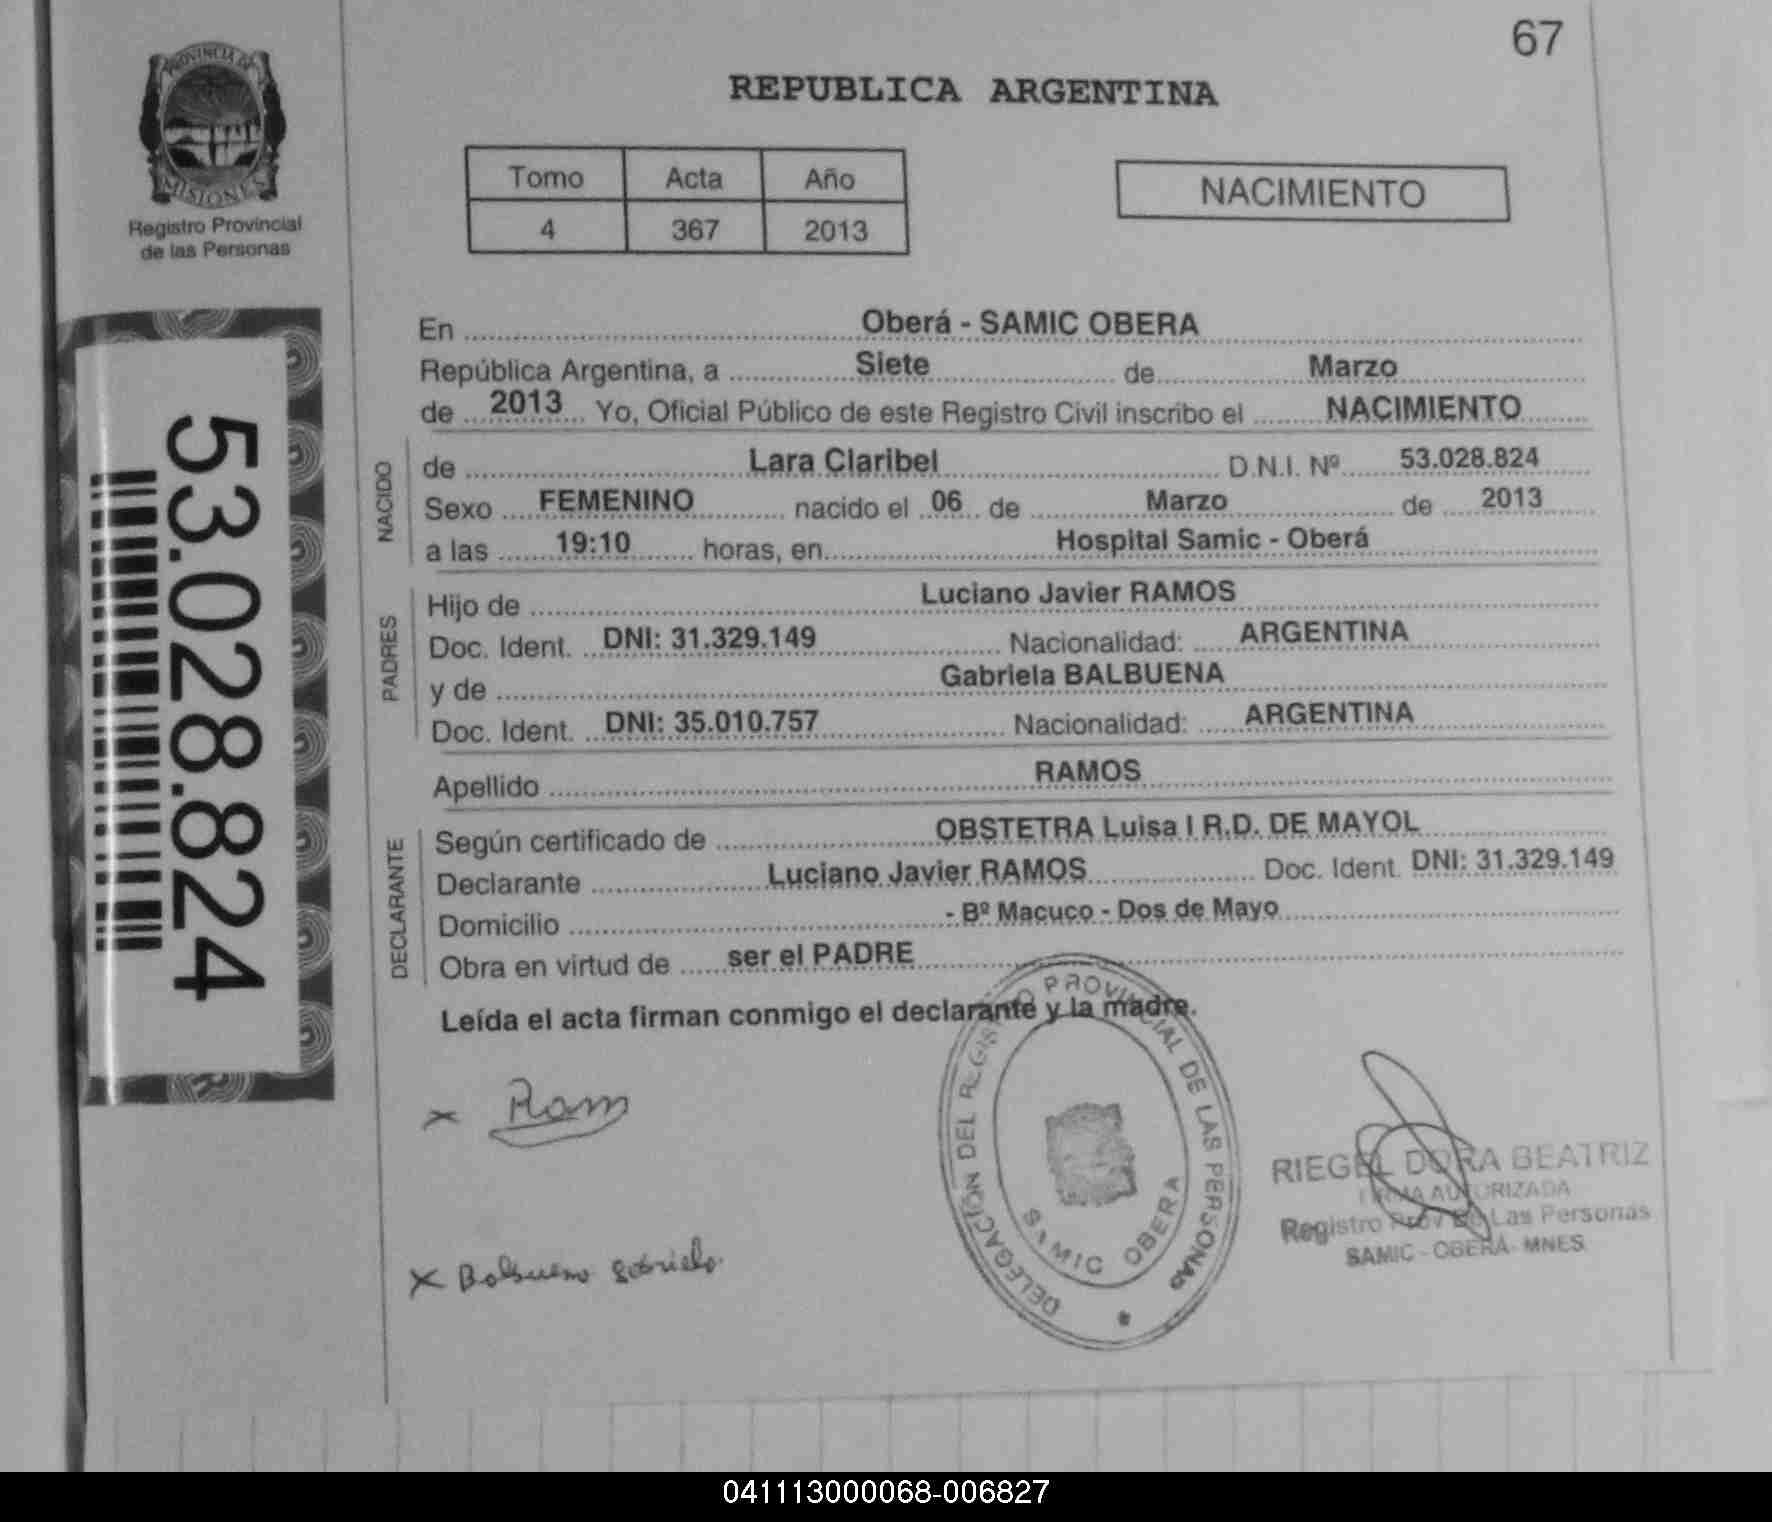 67
PROVINCIA DE
MISIONES
Registro Provincial
de las Personas
REPUBLICA ARGENTINA
Tomo Acta Año
4 367 2013
NACIMIENTO
53.028.824
En Oberá - SAMIC OBERA
República Argentina, a Siete de Marzo
de 2013 Yo, Oficial Público de este Registro Civil inscribo el NACIMIENTO
NACIDO
de Lara Claribel D.N.I. Nº 53.028.824
Sexo FEMENINO nacido el 06 de Marzo de 2013
a las 19:10 horas, en Hospital Samic - Oberá
PADRES
Hijo de Luciano Javier RAMOS
Doc. Ident. DNI: 31.329.149 Nacionalidad: ARGENTINA
y de Gabriela BALBUENA
Doc. Ident. DNI: 35.010.757 Nacionalidad: ARGENTINA
Apellido RAMOS
DECLARANTE
Según certificado de OBSTETRA Luisa I R.D. DE MAYOL
Declarante Luciano Javier RAMOS Doc. Ident. DNI: 31.329.149
Domicilio - Bº Macuco - Dos de Mayo
Obra en virtud de ser el PADRE
Leída el acta firman conmigo el declarante y la madre.
x Ram
x Balbuena Gabriela.
DELEGACIÓN DEL REGISTRO PROVINCIAL DE LAS PERSONAS
SAMIC OBERA
RIEGEL DORA BEATRIZ
FIRMA AUTORIZADA
Registro Prov De Las Personas
SAMIC - OBERÁ- MNES
041113000068-006827